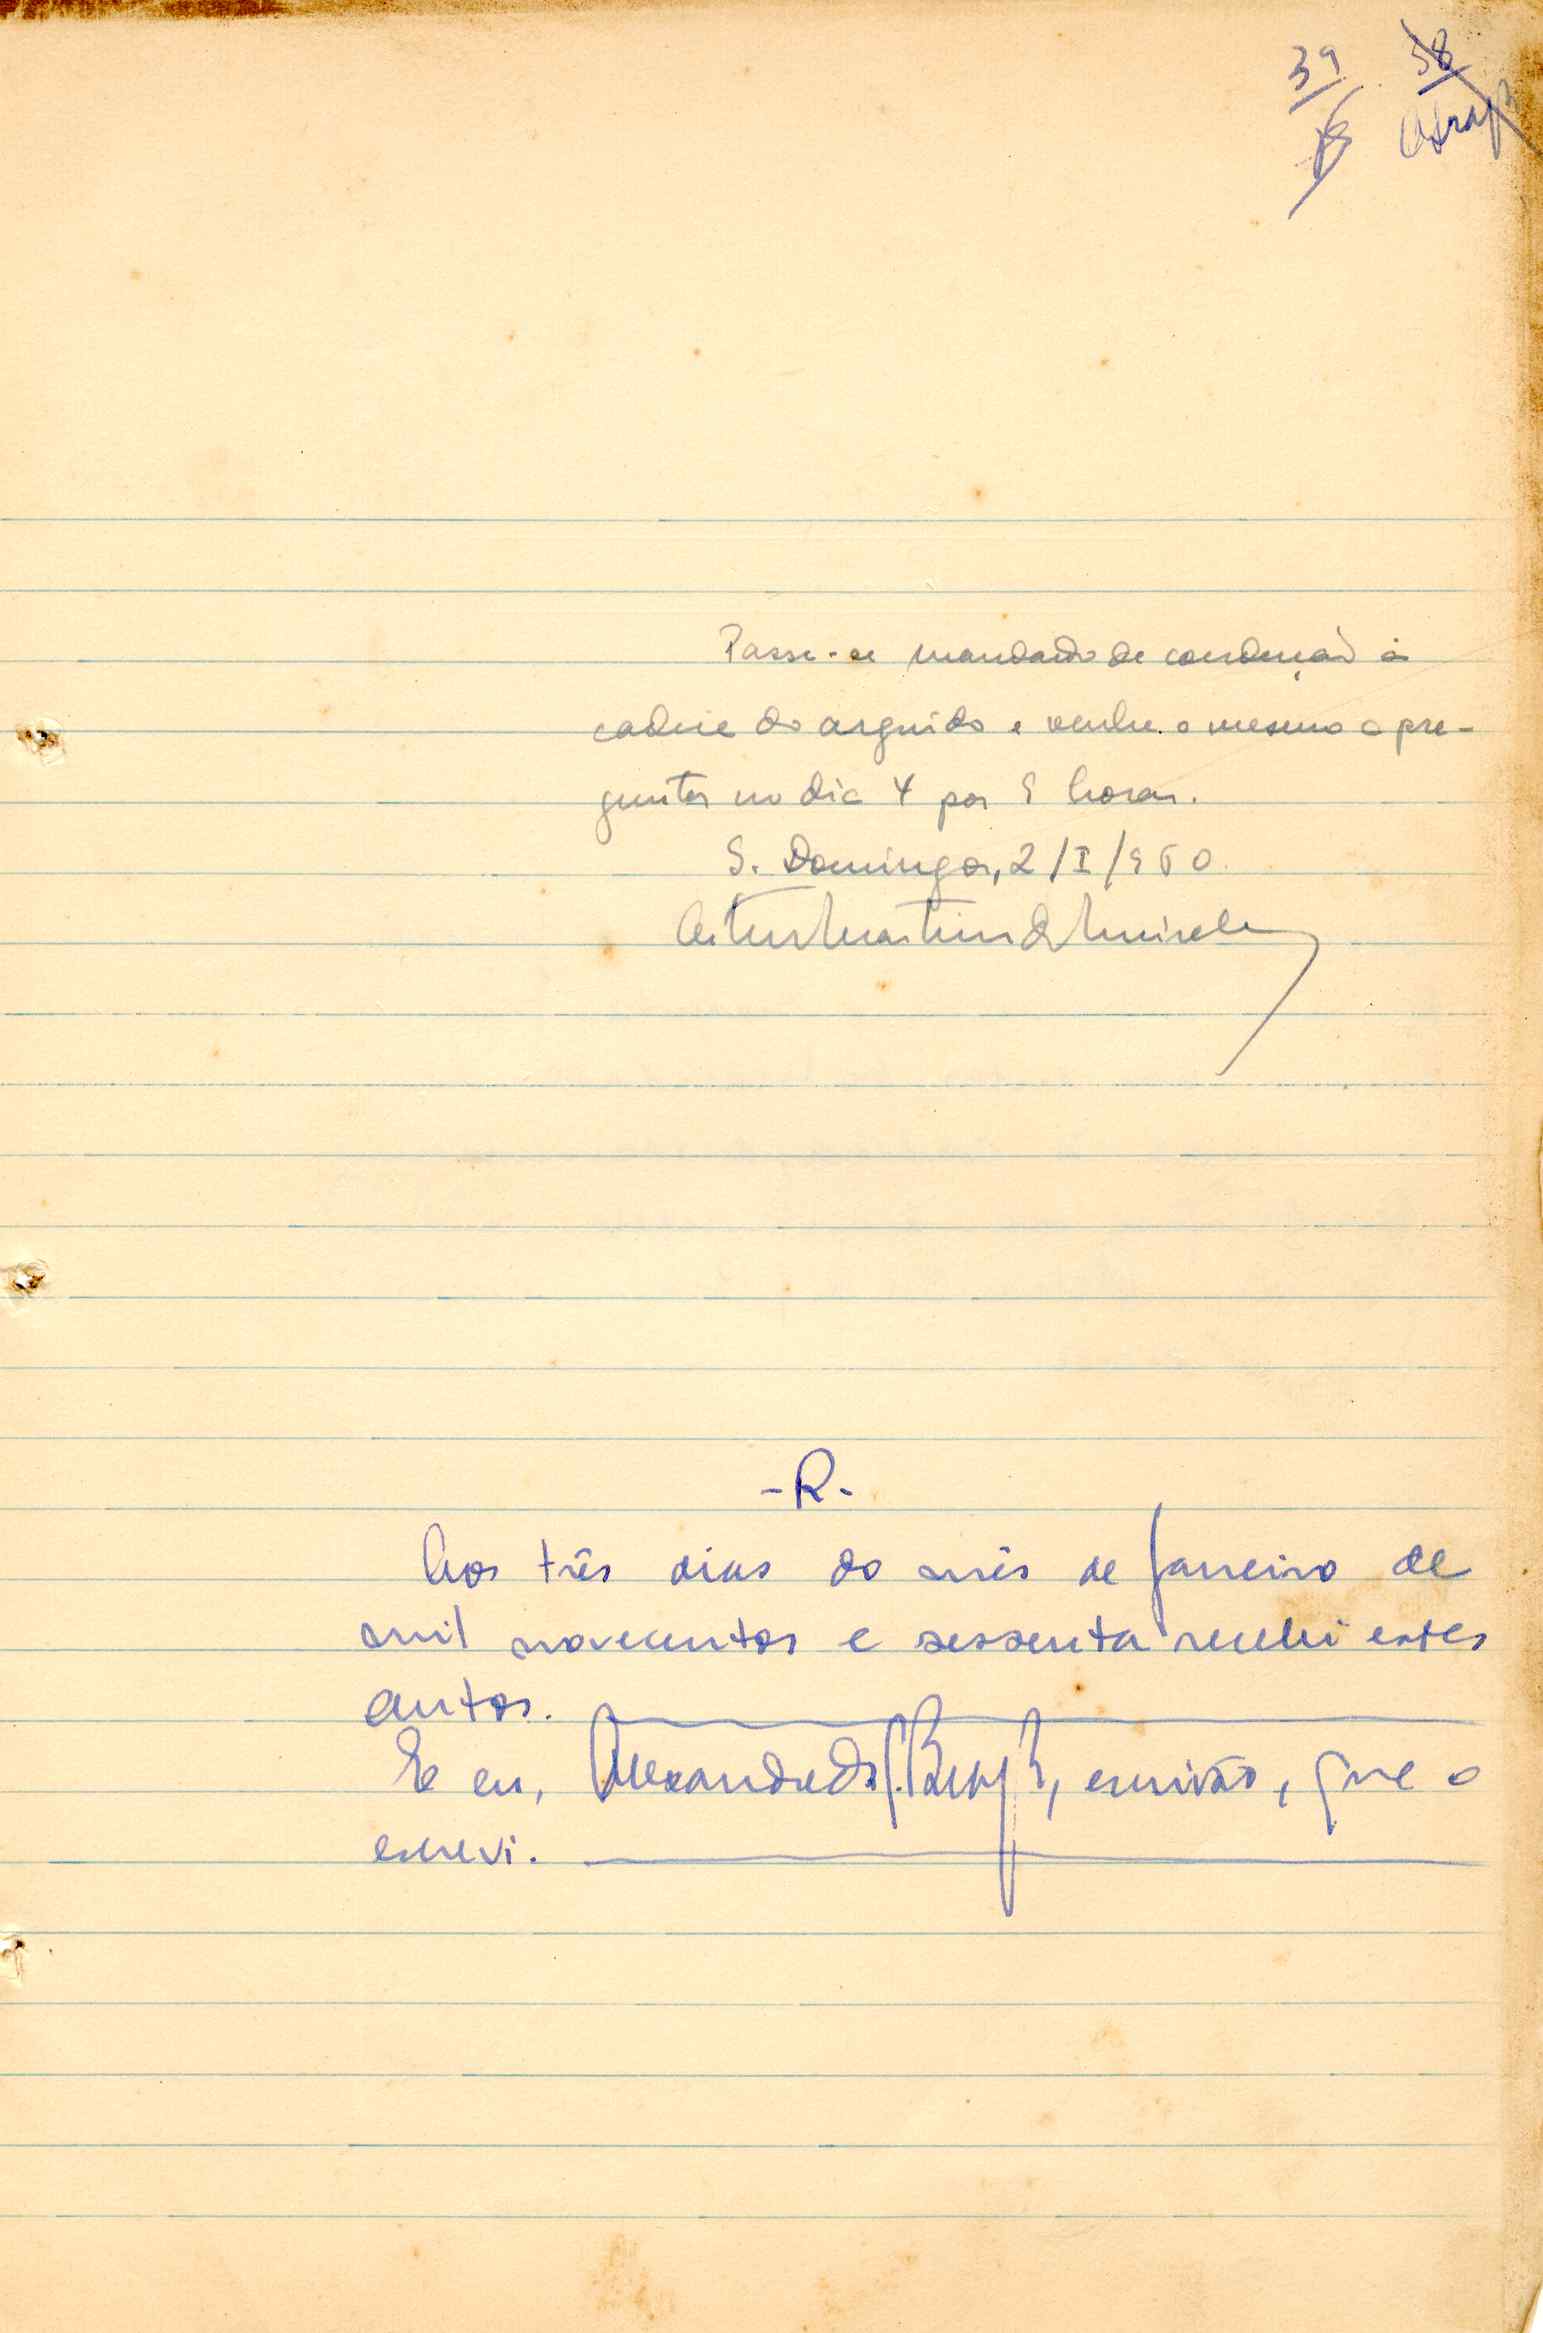 39 58
Passe-se mandado de condução à
cadeia do arguido e venha o mesmo a pre-
guntas no dia 4 por 9 horas.
S. Domingos, 2/I/960
Artur Martins de Meireles
-R-
Aos três dias do mês de Janeiro de
mil novecentos e sessenta recebi estes
autos.
E eu, Alexandre do, escrivão, que o
escrevi.